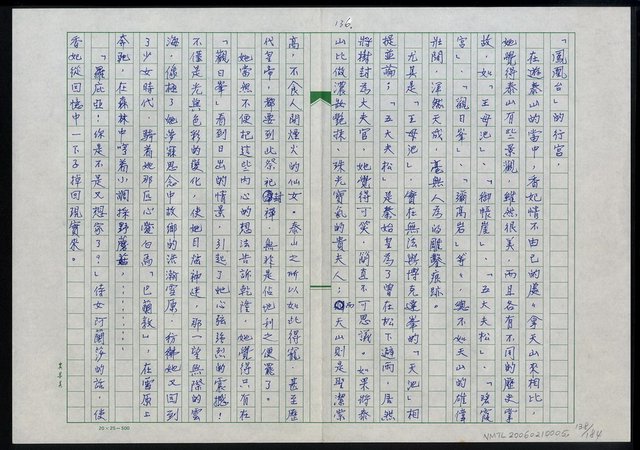 136.
「鳳凰台」的行宮
在遊泰山的當中，香妃情不由己的處處拿天山來相比，
她覺得泰山有些景觀，雖然很美，而且各有不同的歷史掌
故，如「王母池」、「御帳崖」、「五大夫松」、「瑤霞
宮」、「觀日峯」、「瀰高岩」等，總不如天山的雄偉
壯闊，渾然天成，毫無人為的雕鑿痕跡。
尤其是「王母池」，實在無法與博克達峯的「天池」相
提並論；「五大夫松」是秦始皇為了曾在松下避雨，居然
將樹封為大夫官，她覺得可笑，簡直不可思議。如果將泰
山比做濃妝艷抹、珠光寶氣的貴夫人；而天山則是聖潔崇
高，不食人間煙火的仙女。泰山之所以如此得寵，甚至歷
代皇帝，都要到此祭祀封禪，無非是佔地利之便罷了。
她當然不便把這些內心的想法告訴乾隆，她覺得只有在
「觀日峯」看到日出的情景，引起了她心弦強烈的震撼！
不僅是光與色彩的變化，使她目眩神迷，那一望無際的雲
海，像極了她夢寐思念中故鄉的浩瀚雪原，彷彿她又回到
了少女時代，騎着她那匹心愛白馬「巴蘭敦」，在雪原上
奔馳，在森林中哼着小調採野蘑菇，………
「羅庇亞！你是不是又想家了？」侍女阿蘭莎的話，使
香妃從回憶中一下子掉回現實來。
20×25=500
NMTL20060210005
138/184